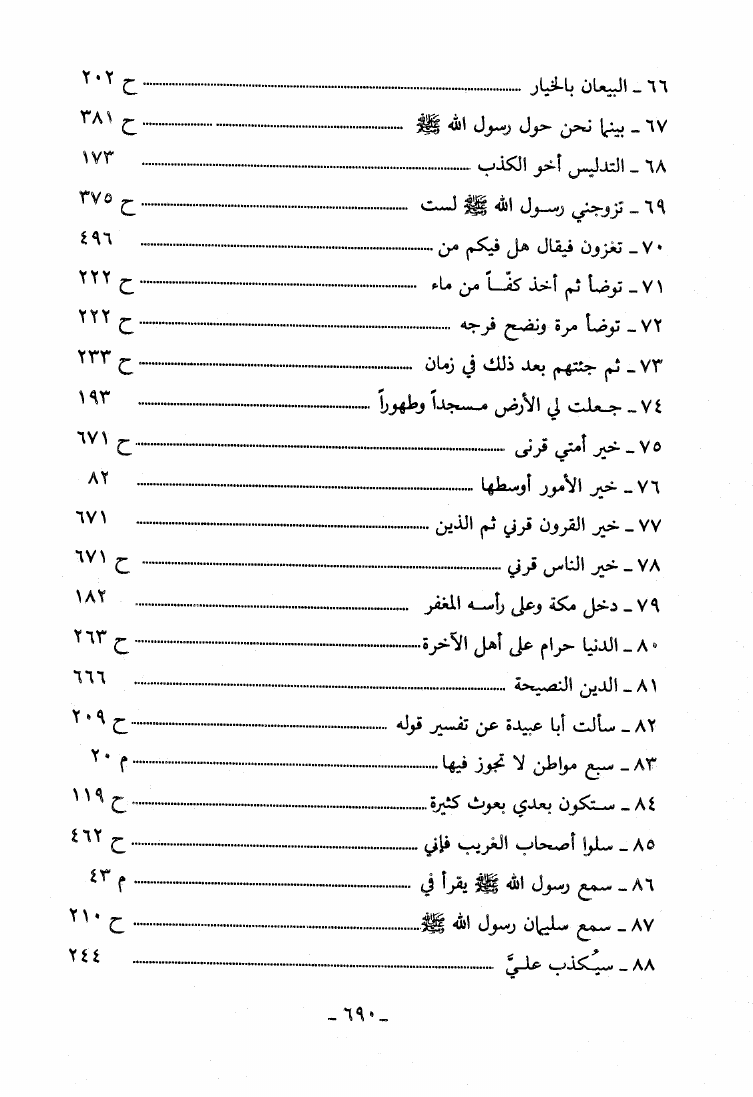 ٦٦ ـ البيعان بالخيار ................ ح ٢٠٢
٦٧ ـ بينما نحن حول رسول الله ﷺ ................ ح ٣٨١
٦٨ ـ التدليس أخو الكذب ................ ١٧٣
٦٩ ـ تزوجني رسول الله ﷺ لست ................ ح ٣٧٥
٧٠ ـ تغزون فيقال هل فيكم من ................ ٤٩٦
٧١ ـ توضأ ثم أخذ كفّاً من ماء ................ ح ٢٢٢
٧٢ ـ توضأ مرة ونضح فرجه ................ ح ٢٢٢
٧٣ ـ ثم جئتهم بعد ذلك في زمان ................ ح ٢٣٣
٧٤ ـ جعلت لي الأرض مسجداً وطهوراً ................ ١٩٣
٧٥ ـ خير أمتي قرنى ................ ح ٦٧١
٧٦ ـ خير الأمور أوسطها ................ ٨٢
٧٧ ـ خير القرون قرني ثم الذين ................ ٦٧١
٧٨ ـ خير الناس قرني ................ ح ٦٧١
٧٩ ـ دخل مكة وعلى رأسه المغفر ................ ١٨٢
٨٠ ـ الدنيا حرام على أهل الآخرة ................ ح ٢٦٣
٨١ ـ الدين النصيحة ................ ٦٦٦
٨٢ ـ سألت أبا عبيدة عن تفسير قوله ................ ح ٢٠٩
٨٣ ـ سبع مواطن لا تجوز فيها ................ م ٢٠
٨٤ ـ ستكون بعدي بعوث كثيرة ................ ح ١١٩
٨٥ ـ سلوا أصحاب الغريب فإني ................ ح ٤٦٢
٨٦ ـ سمع رسول الله ﷺ يقرأ في ................ م ٤٣
٨٧ ـ سمع سليمان رسول الله ﷺ ................ ح ٢١٠
٨٨ ـ سيُكذب عليَّ ................ ٢٤٤
ـ ٦٩٠ ـ